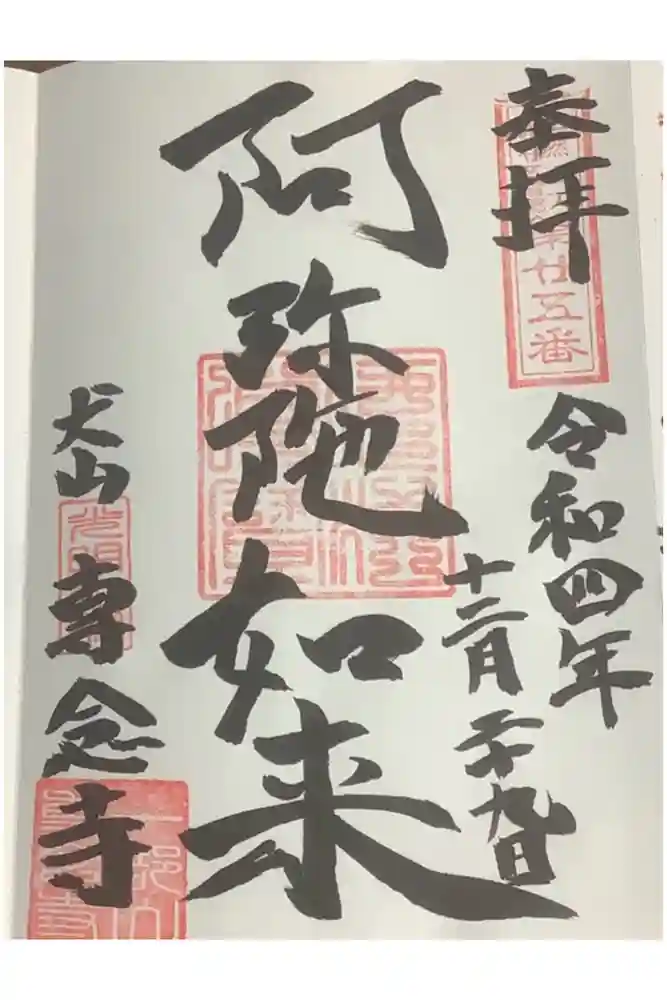 奉拝
廿五番
令和四年
十二月二十九日
阿弥陀如来
犬山
専念寺